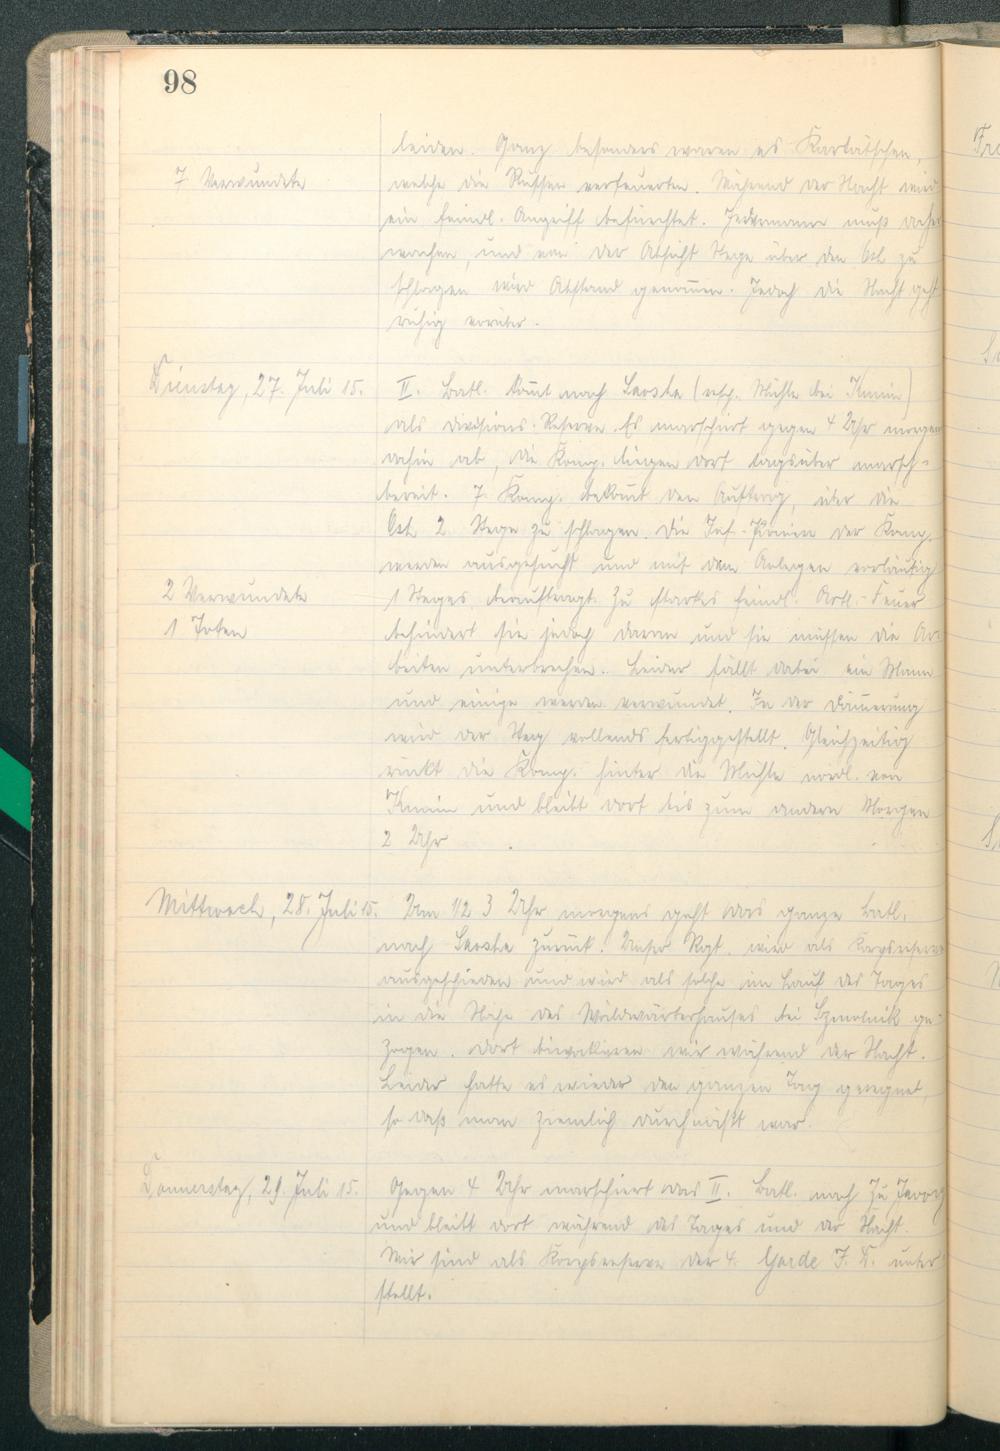 98
leiden. Ganz besonders waren es Kartätschen,
7 Verwundete
welche die Russen verfeuerten. Während der Nacht wird
ein feindl. Angriff befürchtet. Jedermann muß daher
wachen, und von der Absicht Stege über den Ost zu
schlagen wird Abstand genom̅en. Jedoch die Nacht geht
ruhig vorüber.
Dienstag, 27. Juli 15.
II. Batl. kom̅t nach Laoska (resp. Mühle bei Kunin)
als Divisions-Reserve. Es marschiert gegen 4 Uhr morgens
dahin ab, die Komp. liegen dort tagsüber marsch-
bereit. 7. Komp. bekom̅t den Auftrag, über die
Ost 2 Stege zu schlagen. Die Inf.-Pioniere der Komp.
werden ausgesucht und mit dem Anlegen vorläufig
2 Verwundete
1 Steges beauftragt. Zu starkes feindl. Artl.-Feuer
1 Toten
behindert sie jedoch daran und sie müssen die Ar-
beiten unterbrechen. Leider fällt dabei ein Mann
und einige werden verwundet. In der Däm̅erung
wird der Steg vollends fertiggestellt. Gleichzeitig
rückt die Komp. hinter die Mühle nördl. von
Kunin und bleibt dort bis zum andern Morgen
2 Uhr.
Mittwoch, 28. Juli 15.
Um 1/2 3 Uhr morgens geht das ganze Batl.
nach Laoska zurück. Unser Rgt. wird als Korpsreserve
ausgeschieden und wird als solche im Lauf des Tages
in die Nähe des Waldwärterhauses bei Szmolnik ge-
zogen. Dort biwakieren wir während der Nacht.
Leider hatte es wieder den ganzen Tag geregnet,
so daß man ziemlich durchnäßt war.
Donnerstag, 29. Juli 15.
Gegen 4 Uhr marschiert das II. Batl. nach
und bleibt dort während des Tages und der Nacht.
Wir sind als Korpsreserve der 4. Garde I. D. unter-
stellt.